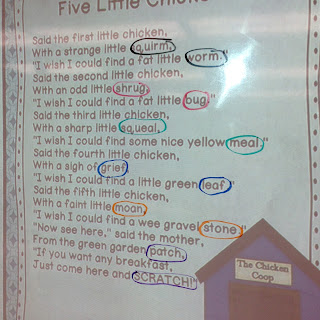 Five Little Chicke
Said the first little chicken,
With a strange little squirm,
"I wish I could find a fat little worm."
Said the second little chicken,
With an odd little shrug,
"I wish I could find a fat little bug."
Said the third little chicken,
With a sharp little squeal,
"I wish I could find some nice yellow meal."
Said the fourth little chicken,
With a sigh of grief,
"I wish I could find a little green leaf."
Said the fifth little chicken,
With a faint little moan,
"I wish I could find a wee gravel stone."
"Now see here," said the mother,
From the green garden patch,
"If you want any breakfast,
Just come here and SCRATCH!"
The Chicken
Coop